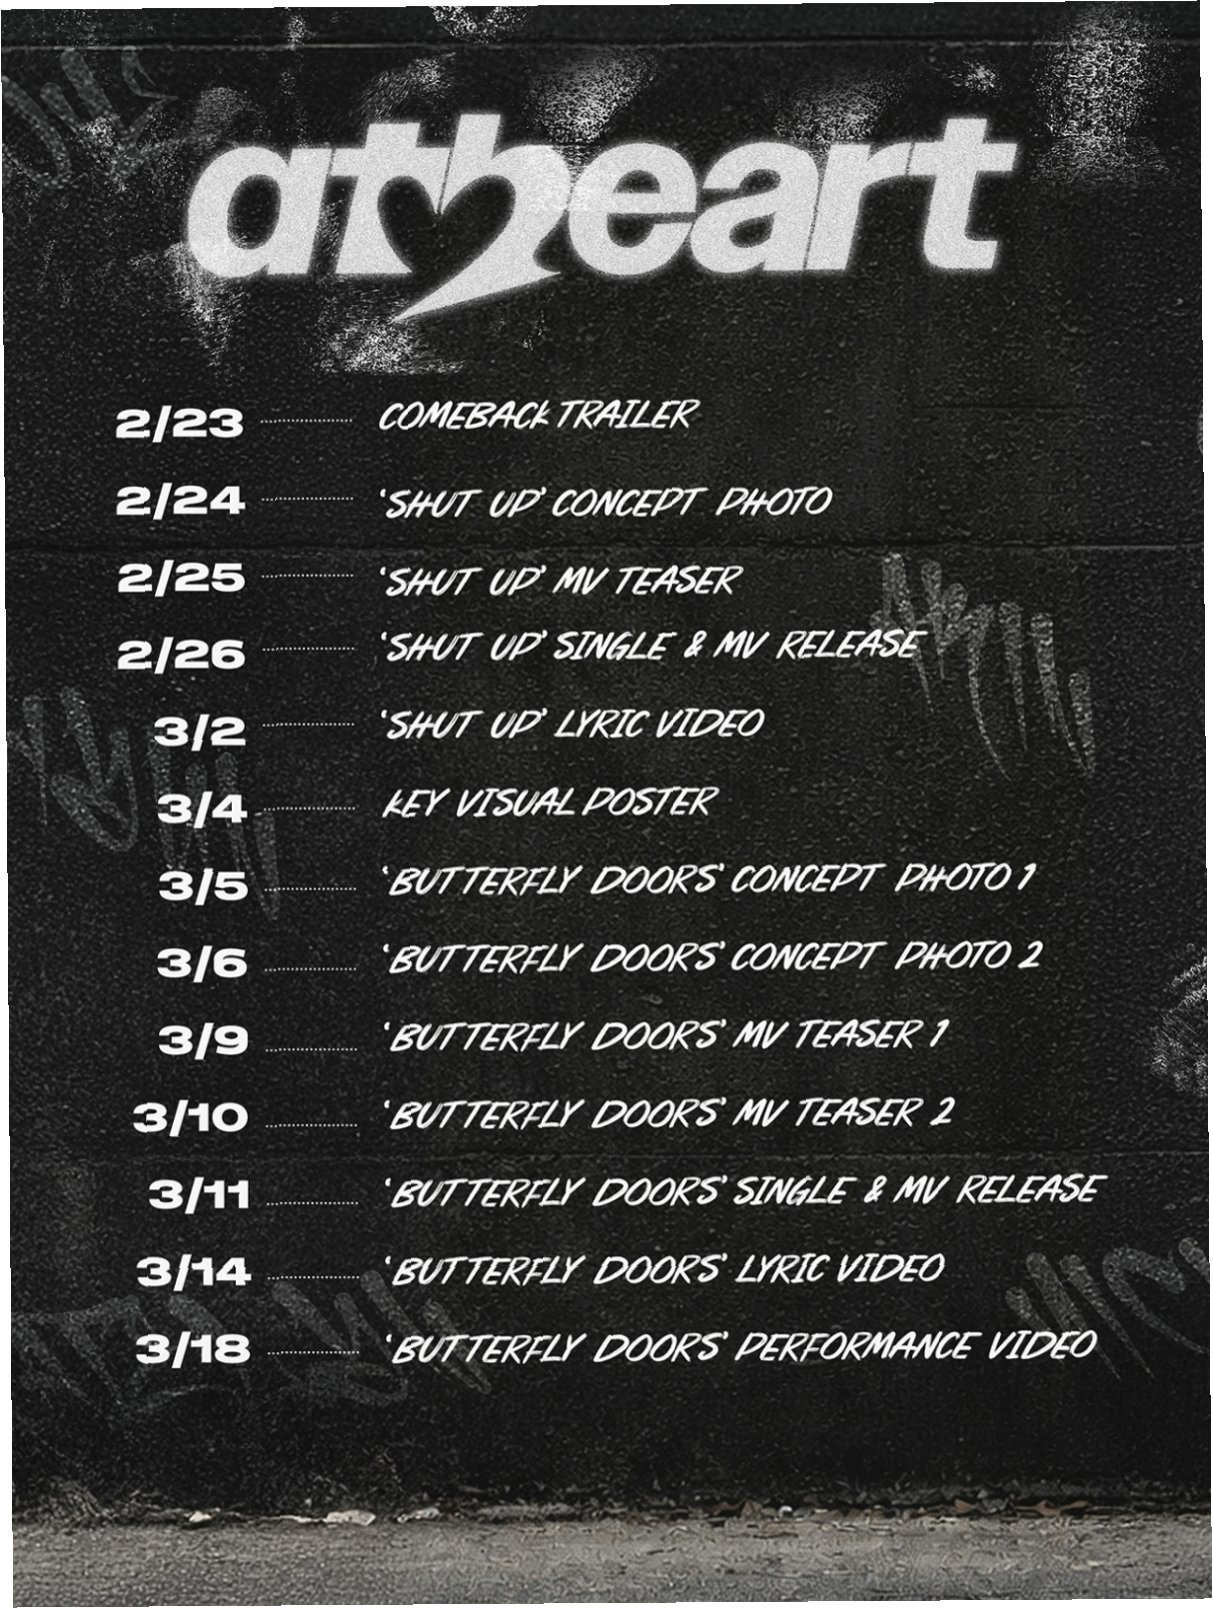 atheart
2/23 COMEBACK TRAILER
2/24 'SHUT UP' CONCEPT PHOTO
2/25 'SHUT UP' MV TEASER
2/26 'SHUT UP' SINGLE & MV RELEASE
3/2 'SHUT UP' LYRIC VIDEO
3/4 KEY VISUAL POSTER
3/5 'BUTTERFLY DOORS' CONCEPT PHOTO 1
3/6 'BUTTERFLY DOORS' CONCEPT PHOTO 2
3/9 'BUTTERFLY DOORS' MV TEASER 1
3/10 'BUTTERFLY DOORS' MV TEASER 2
3/11 'BUTTERFLY DOORS' SINGLE & MV RELEASE
3/14 'BUTTERFLY DOORS' LYRIC VIDEO
3/18 'BUTTERFLY DOORS' PERFORMANCE VIDEO